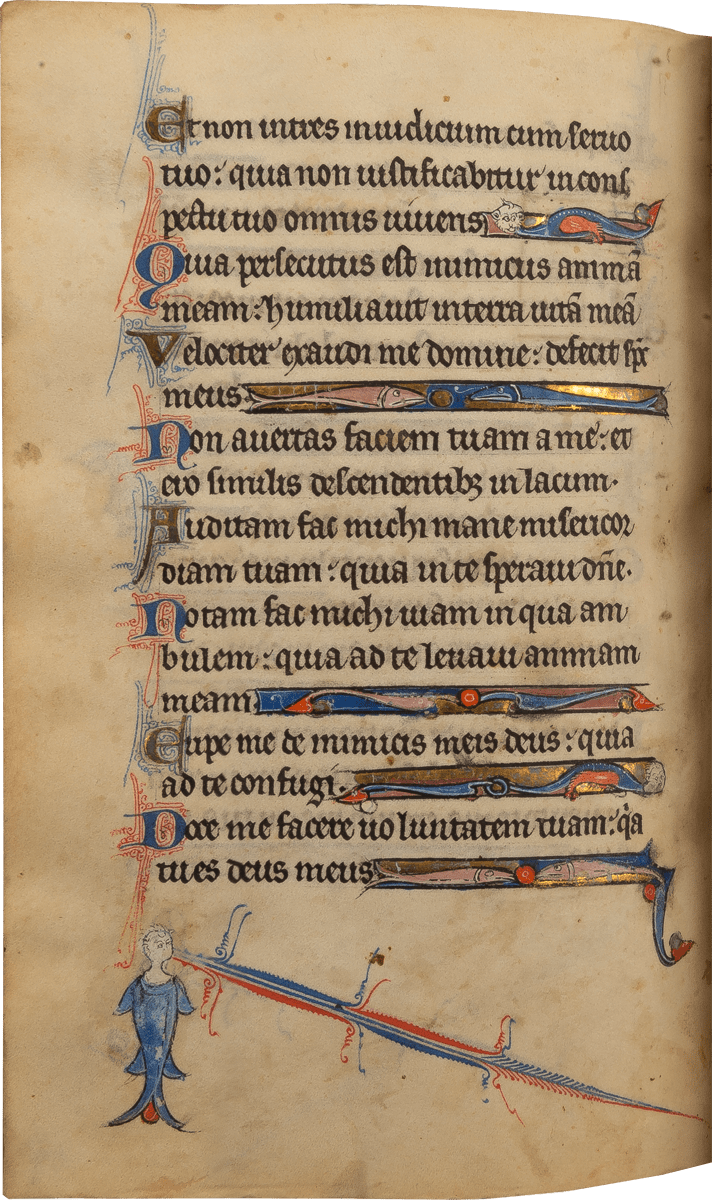 Et non intres in iudicium cum seruo
tuo: quia non iustificabitur in cons
pectu tuo omnis uiuens
Quia persecutus est inimicus animā
meam: humiliauit in terra uitā meā
Velociter exaudi me domine: defecit sp̄c
meus
Non auertas faciem tuam a me: et
ero similis descendentibꝫ in lacum.
Auditam fac michi mane misericor
diam tuam: quia in te speraui dn̄e.
Notam fac michi uiam in qua am
bulem: quia ad te leuaui animam
meam
Eripe me de inimicis meis deus: quia
ad te confugi.
Doce me facere uoluntatem tuam: qͥa
tu es deus meus